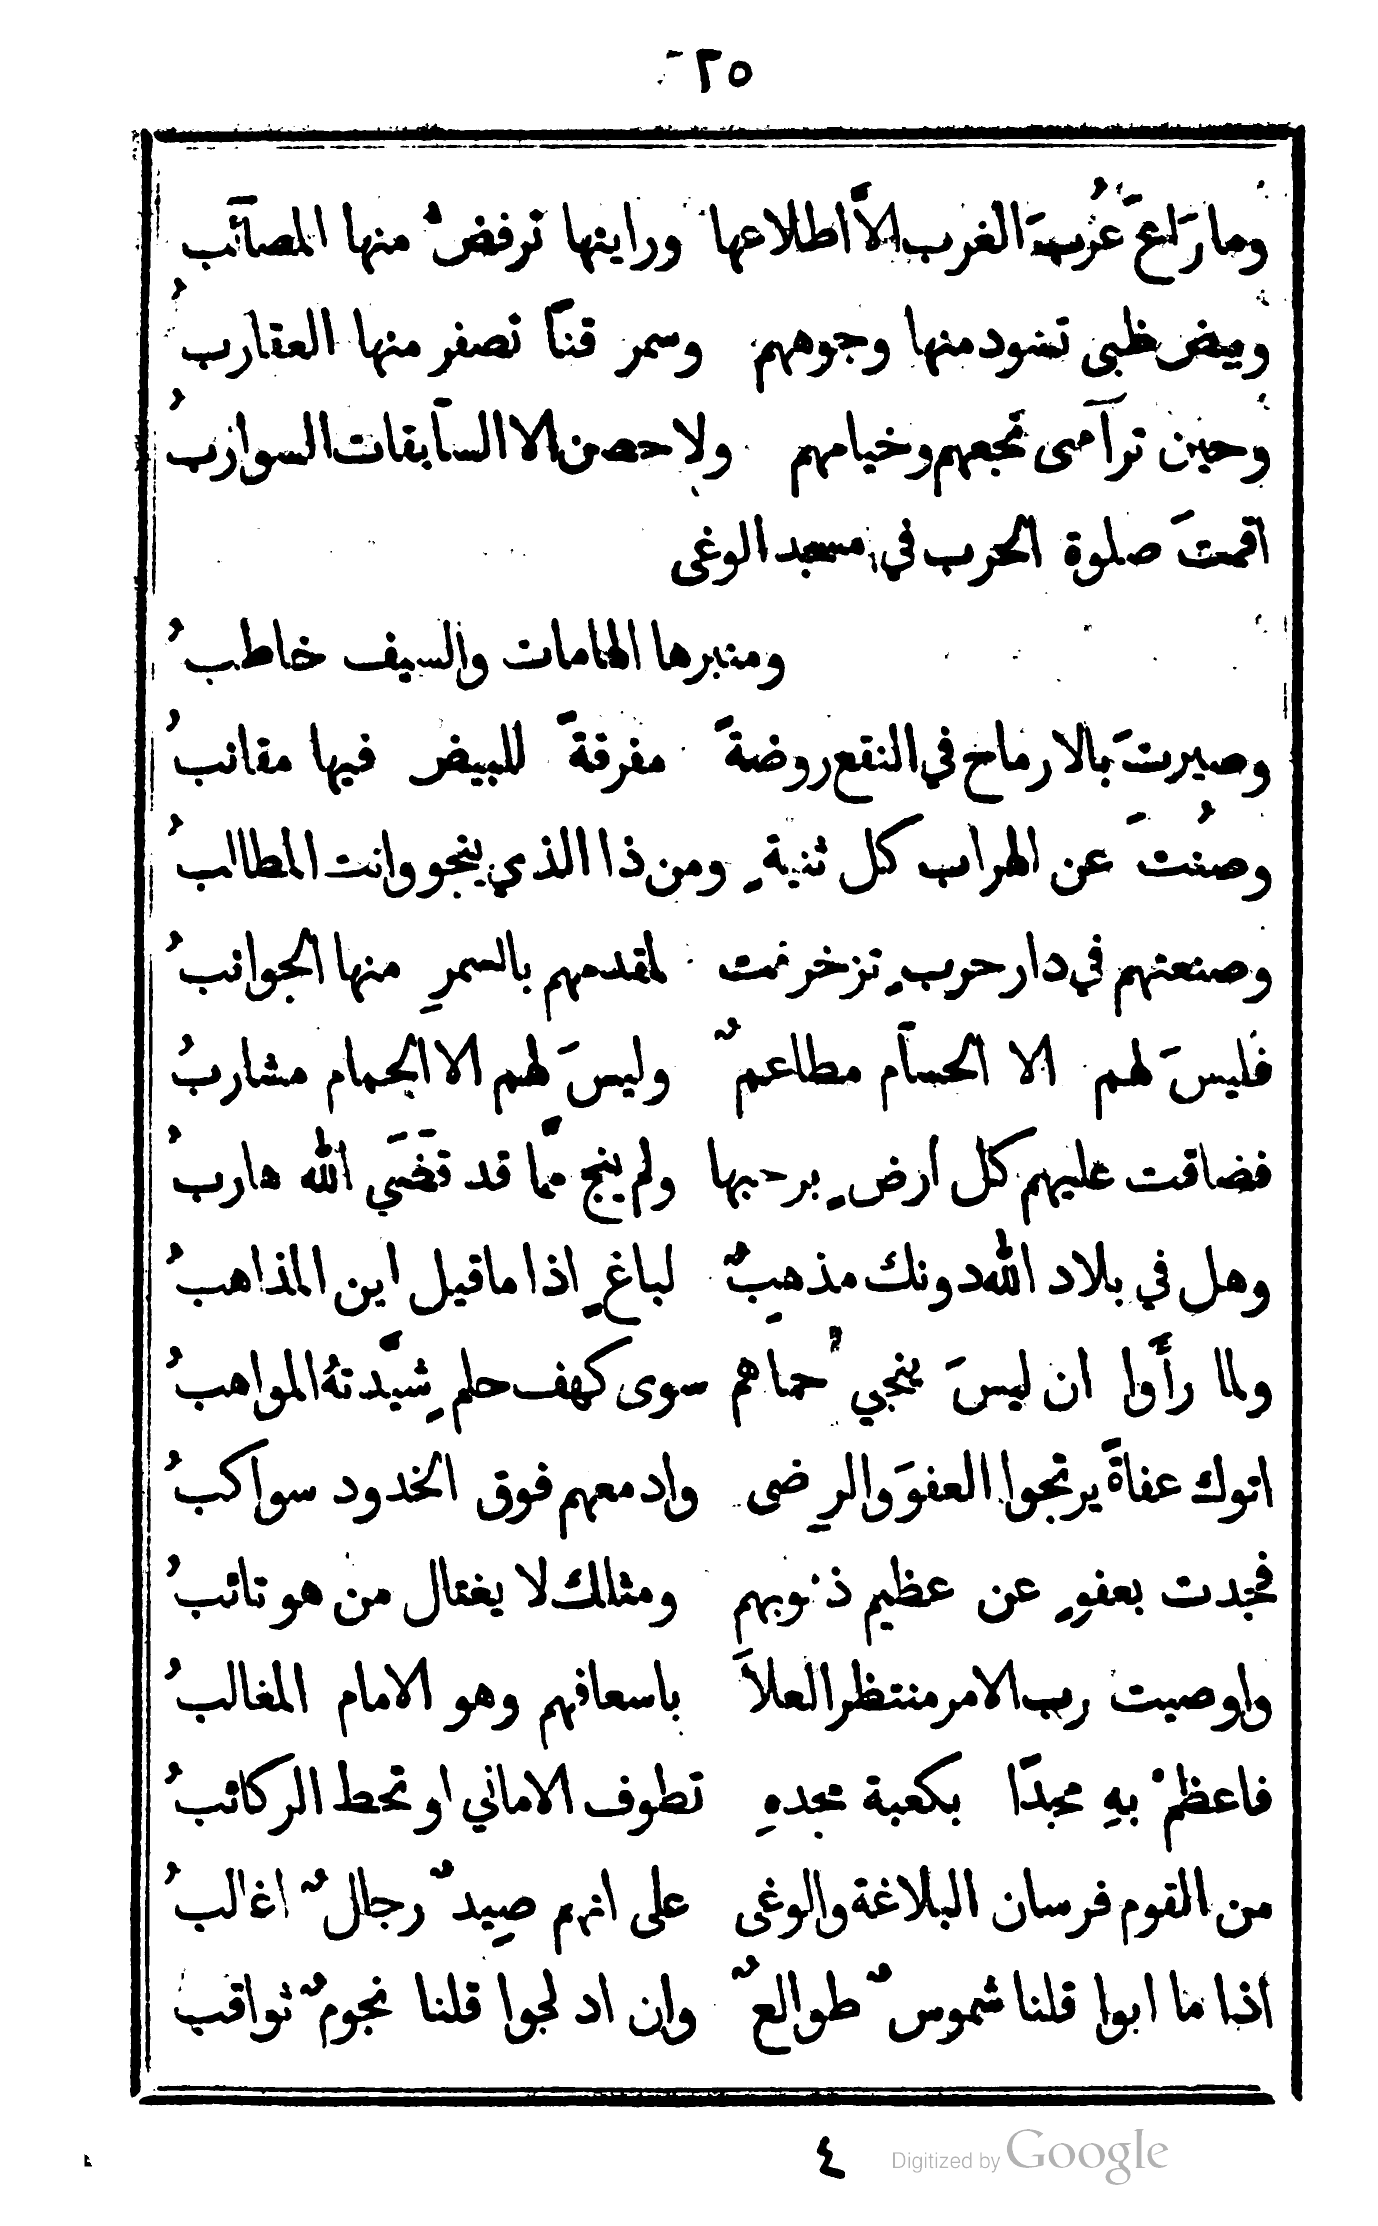 ٢٥
وما رَاعَ عُربَ الغرب الاَّ اطلاعها ورايتها ترفضُ منها المصآئب
وبيض ظبى تسْود منها وجوههم وسمر قناً تصفر منها العقاربُ
وحين ترآمى تجعهم وخيامهم ولا حصن الا السآبقات السوازبُ
اقمتَ صلوة الحرب في مسجد الوغى
ومنبرها الهامات والسيف خاطبُ
وصيرتَ بالارماح في النقع روضةً مفرقةً للبيض فيها مقانبُ
وصُنتَ عن الهراب كل ثنيةٍ ومن ذا الذي ينجو وانت المطالبُ
وصنعتهم في دار حربٍ تزخرفت لمقدمهم بالسمرِ منها الجوانبُ
فليسَ لهم الا الحسآم مطاعمٌ وليسَ لهم الا الجمام مشاربُ
فضاقت عليهم كل ارضٍ برحبها ولم ينج ممَّا قد قَضَى الله هاربُ
وهل في بلاد الله دونك مذهبٌ لباغٍ اذا ما قيل اين المذاهبُ
ولما رأَوا ان ليسَ ينجي حماهم سوى كهف حلمٍ شيَّدتهُ المواهبُ
اتوك عفاةً يرتجوا العفوَ والرِضى وادمعهم فوق الخدود سواكبُ
فجدت بعفوٍ عن عظيم ذنوبهم ومثالك لا يغتال من هو تائبُ
واوصيت رب الامر منتظر العلاَ باسعافهم وهو الامام المغالبُ
فاعظمْ بهِ مجدًا بكعبة مجدهِ تطوف الاماني او تحط الركائبُ
من القوم فرسان البلاغة والوغى على انهم صِيدٌ رجالٌ اغالبُ
اذا ما ابوا قلنا شموسٌ طوالعٌ وان ادلجوا قلنا نجومٌ ثواقب
٤
Digitized by Google